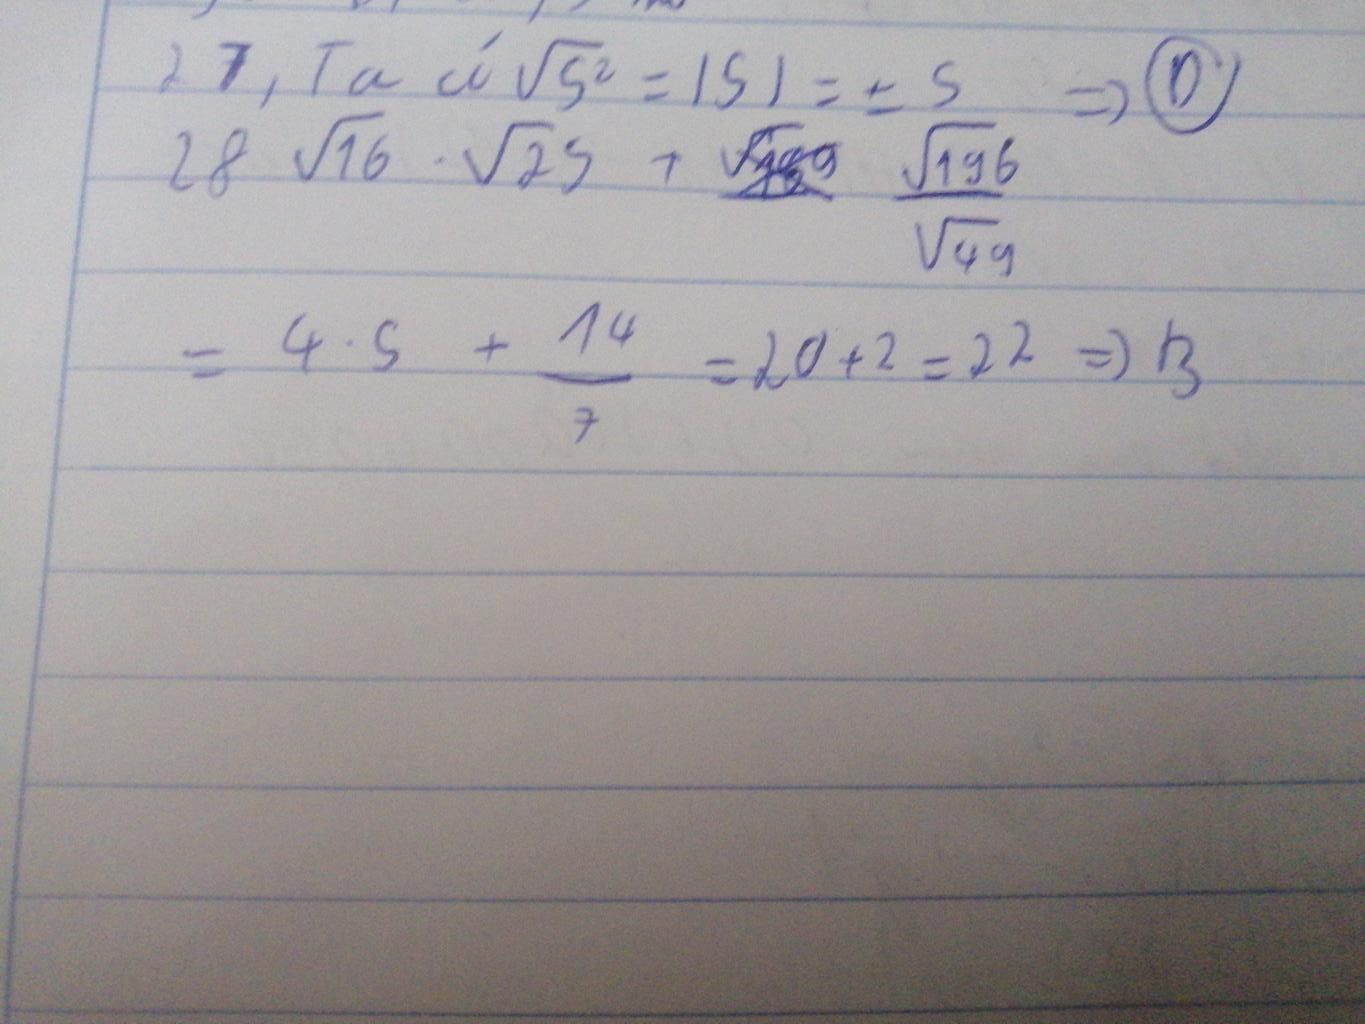 27, Ta có √5² = |5| = ± 5 => D
28 √16 . √25 + √196 / √49
= 4 . 5 + 14 / 7 = 20 + 2 = 22 => B